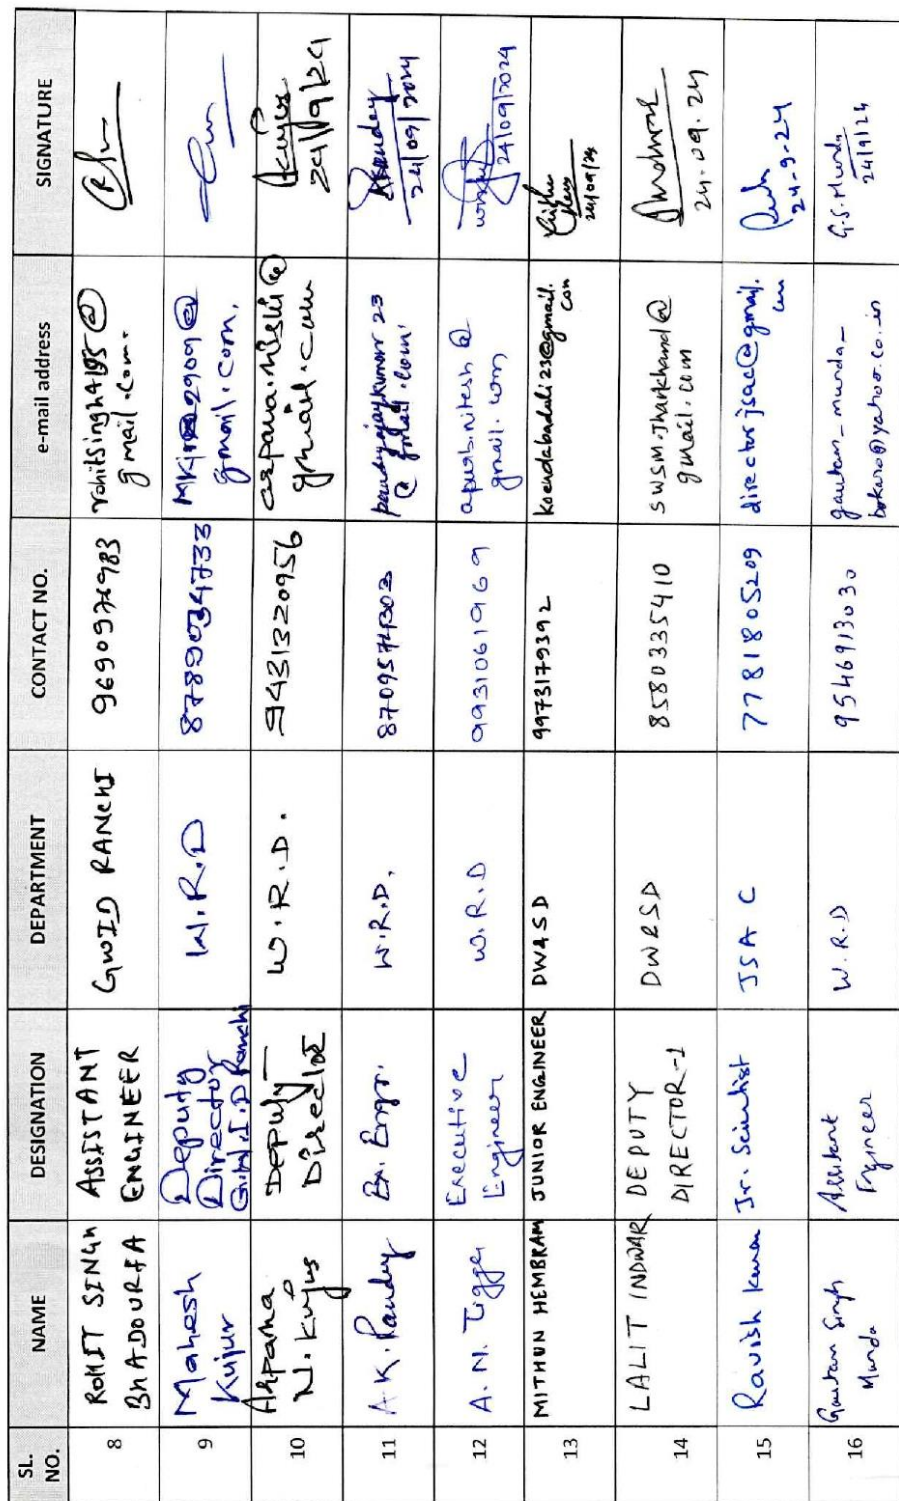 SL. NO. NAME DESIGNATION DEPARTMENT CONTACT NO. e-mail address SIGNATURE
8 ROHIT SINGH BHADOURIA ASSISTANT ENGINEER GWID RANCHI rohitsingh4195@gmail.com.
9 Mahesh Kujur Deputy Director G.W.I.D Ranchi W.R.D 8789034733 gmail.com.
10 Arpana N. Kujur Deputy Director W.R.D. 9431320956 @gmail.com Kujur 24/9/24
11 A.K. Pandey Ex. Engr. W.R.D. 8709574303 Pandey 24/09/2024
12 A.N. Tigga Executive Engineer W.R.D 9931061969 apurb.nitesh@gmail.com 24/09/2024
13 MITHUN HEMBRAM JUNIOR ENGINEER DW&SD 9973179392 koendabadali23@gmail.com 24/09/24
14 LALIT INDWAR DEPUTY DIRECTOR-1 DW&SD 8580335410 swsm.jharkhand@gmail.com 24.09.24
15 Ravish Kumar Jr. Scientist JSAC 7781805209 directorjsac@gmail.com 24-9-24
16 Gautam Singh Munda Assistant Engineer W.R.D 9546913030 gautam_munda_bokaro@yahoo.co.in G.S. Munda 24/9/24